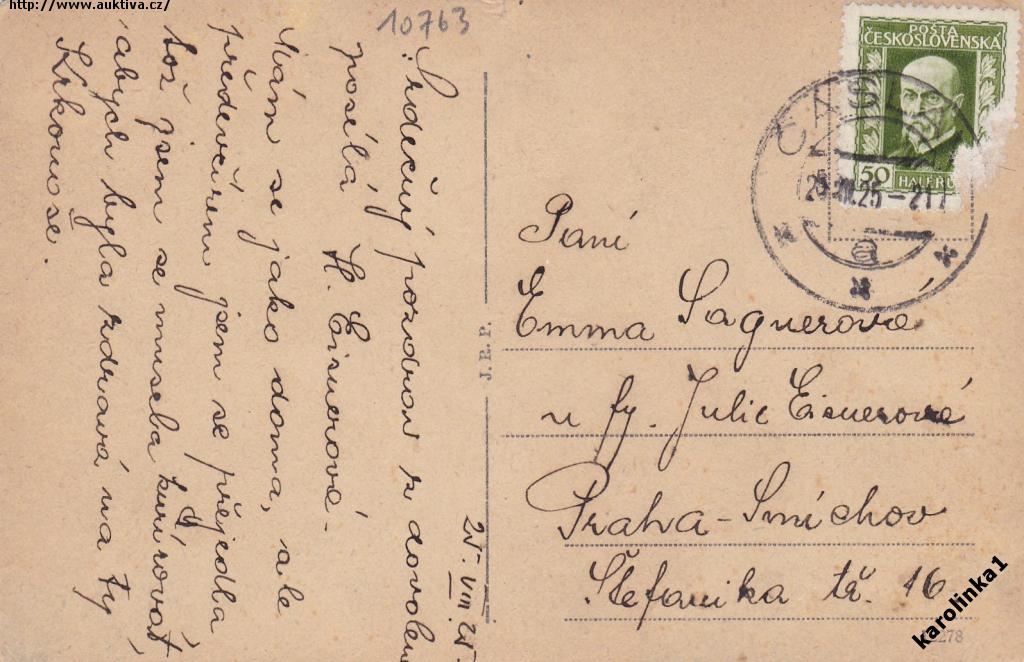 http://www.auktiva.cz/
10763
Srdečný pozdrav z dovolen
posílá
H. Eisnerové.
Mám se jako doma, ale
předevčírem jsem se přejedla
tož jsem se musela kurýrovat,
abych byla zdravá na ty
Krkonoše.
25. VIII. 25.
J. R. P.
POŠTA
ČESKOSLOVENSKÁ
50 HALÉŘŮ
ČÁSLAV
25.VIII.25-21
a
Paní
Emma Sagnerové
u fy. Julie Eisnerové
Praha-Smíchov
Štefanika tř. 16
278
karolinka1